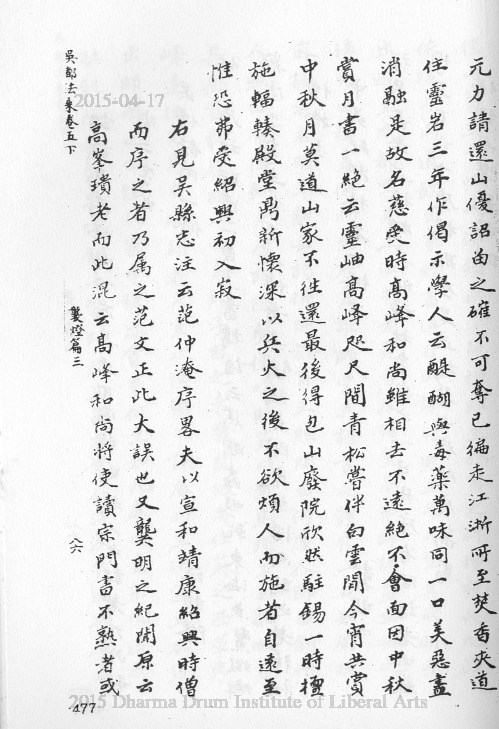 元力請還山優詔留之確不可奪已徧走江淅所至焚香夾道
住靈岩三年作偈示學人云醍醐與毒藥萬味同一口美惡盡
消融是故名慈受時髙峰和尚雖相去不遠絶不會面因中秋
賞月書一絶云靈岫髙峰咫尺間青松嘗伴白雲閒今宵共賞
中秋月莫道山家不往還最後得包山廢院欣然駐錫一時檀
施輻輳殿堂鼎新懷深以兵火之後不欲煩人而施者自遠至
惟恐弗受紹興初入寂
右見吴縣志注云范仲淹序畧夫以宣和靖康紹興時僧
而序之者乃属之范文正此大誤也又龔明之紀聞原云
高峯瓚老而此混云髙峰和尚将使讀宗門書不熟者或
吳都法乘卷五下
襲燈篇三
八六
477
2015-04-17
2015 Dharma Drum Institute of Liberal Arts